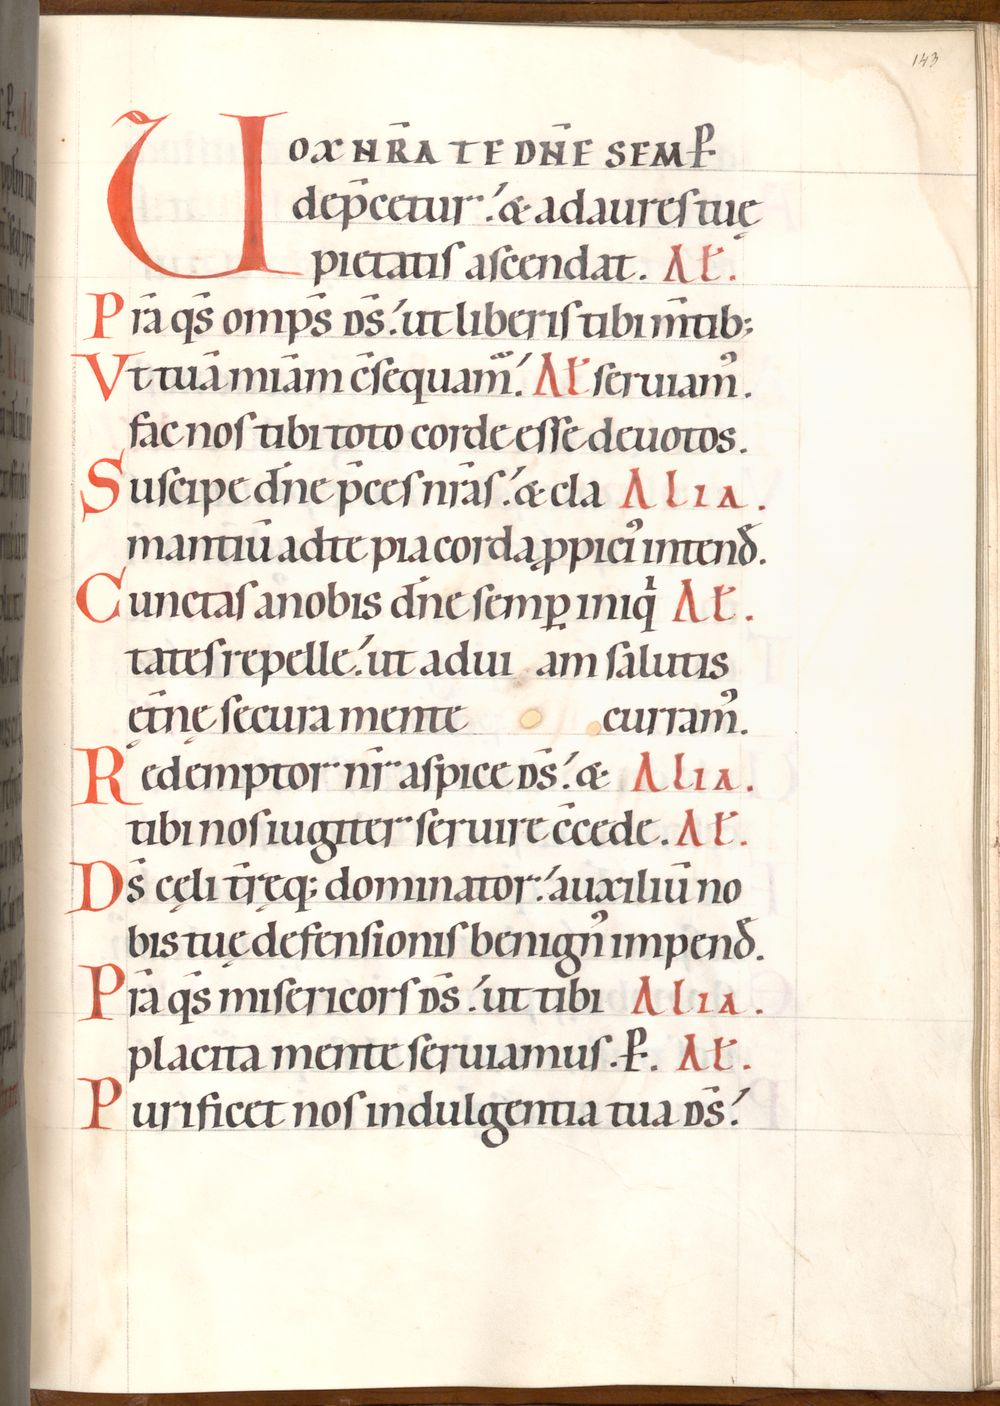 143
UOX NR̄A TE DN̄E SEMP̄
dep̄cetur. & ad aures tuę
pietatis ascendat. Al̄.
Pr̄a qs̄ omps̄ ds̄. ut liberis tibi m̄tib;
Vt tuā miām c̄sequam̃. Al̄ seruiam᷒.
fac nos tibi toto corde esse deuotos.
Suscipe dn̄e p̄ces nr̄as. & cla Alia.
mantiū ad te pia corda ꝓpici᷒ intend̄.
Cunctas a nobis dn̄e semꝑ iniqⁱ Al̄.
tates repelle. ut ad uiam salutis
ęt̄nę secura mente curram᷒.
Redemptor nr̄ aspice ds̄. & Alia.
tibi nos iugiter seruire c̄cede. Al̄.
Ds̄ cęli t̄ręq; dominator. auxiliū no
bis tuę defensionis benign᷒ impend̄.
Pr̄a qs̄ misericors ds̄. ut tibi Alia.
placita mente seruiamus. p̄. Al̄.
Purificet nos indulgentia tua ds̄.